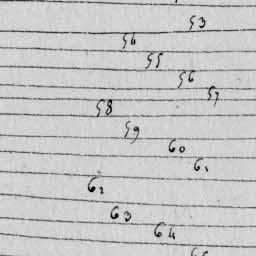 53
54
55
56
57
58
59
60
61
62
63
64